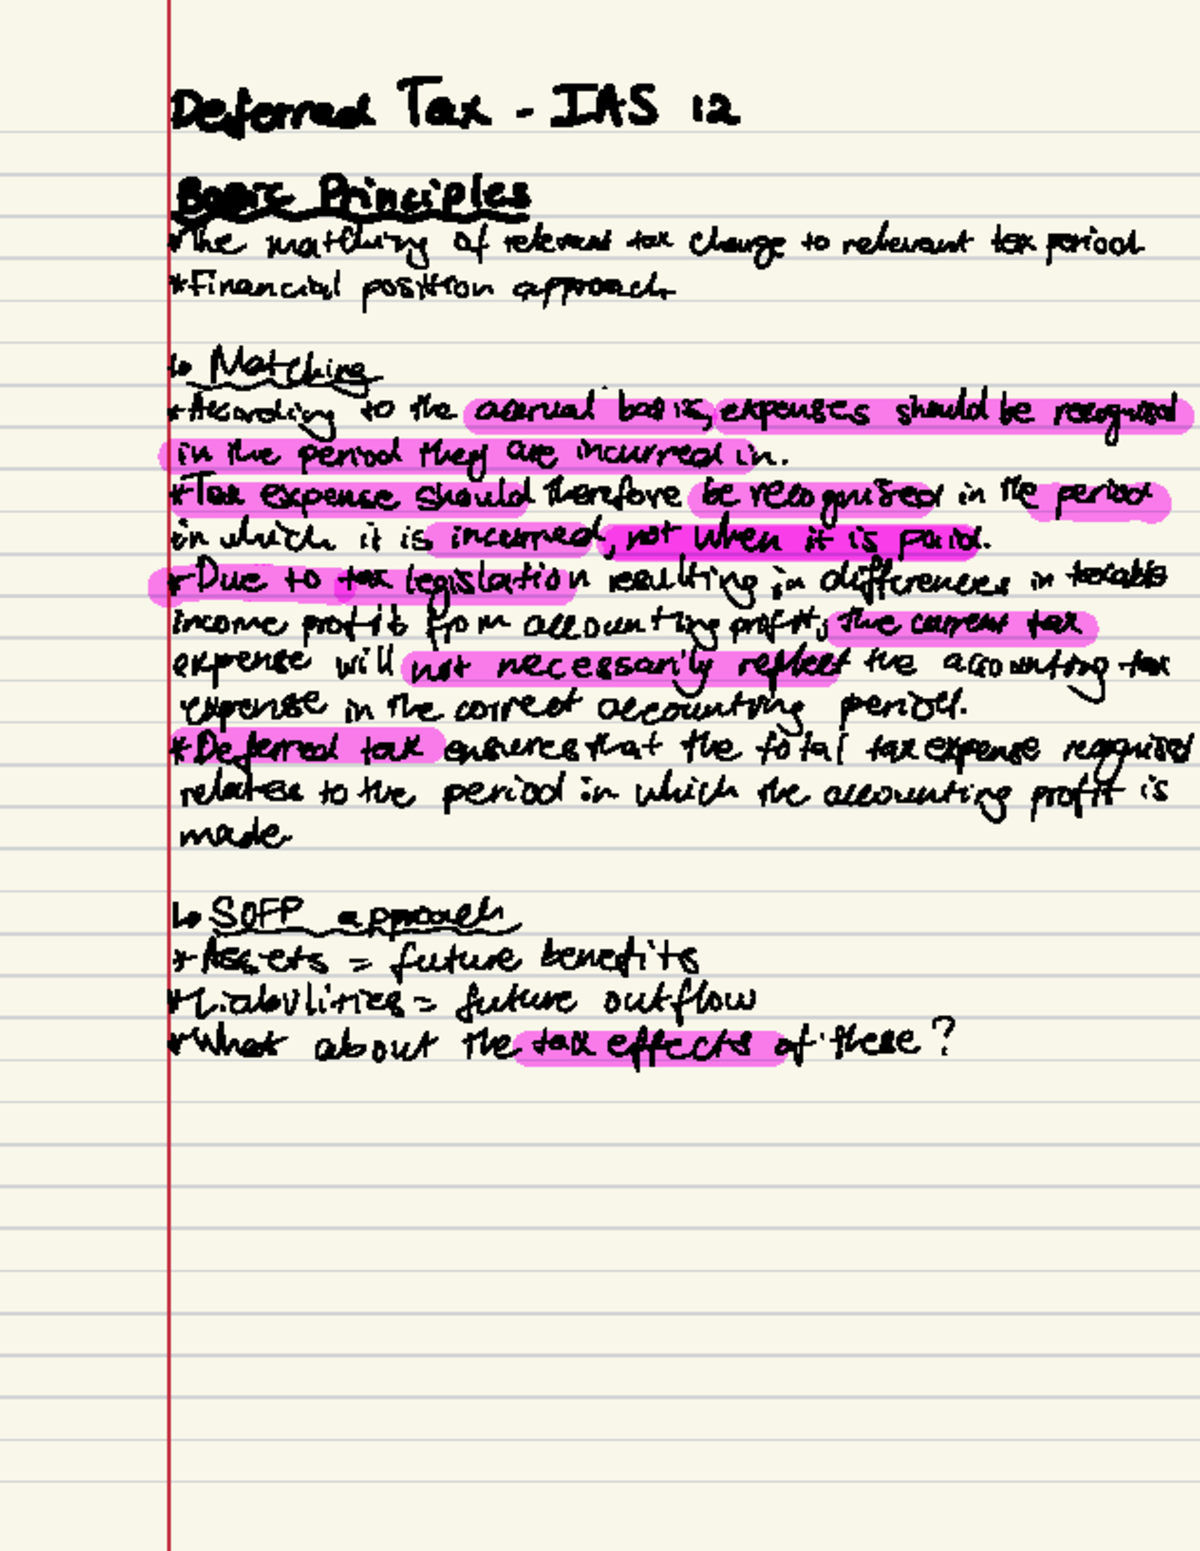 Deferred Tax - IAS 12
Basic Principles
*The matching of relevant tax charge to relevant tax period
*Financial position approach
↳ Matching
*According to the accrual basis, expenses should be recognised
in the period they are incurred in.
*Tax expense should therefore be recognised in the period
in which it is incurred, not when it is paid.
*Due to tax legislation resulting in differences in taxable
income profit from accounting profit, the current tax
expense will not necessarily reflect the accounting tax
expense in the correct accounting period.
*Deferred tax ensures that the total tax expense recognised
relates to the period in which the accounting profit is
made
↳ SOFP approach
*Assets = future benefits
*Liabilities = future outflow
*What about the tax effects of these?